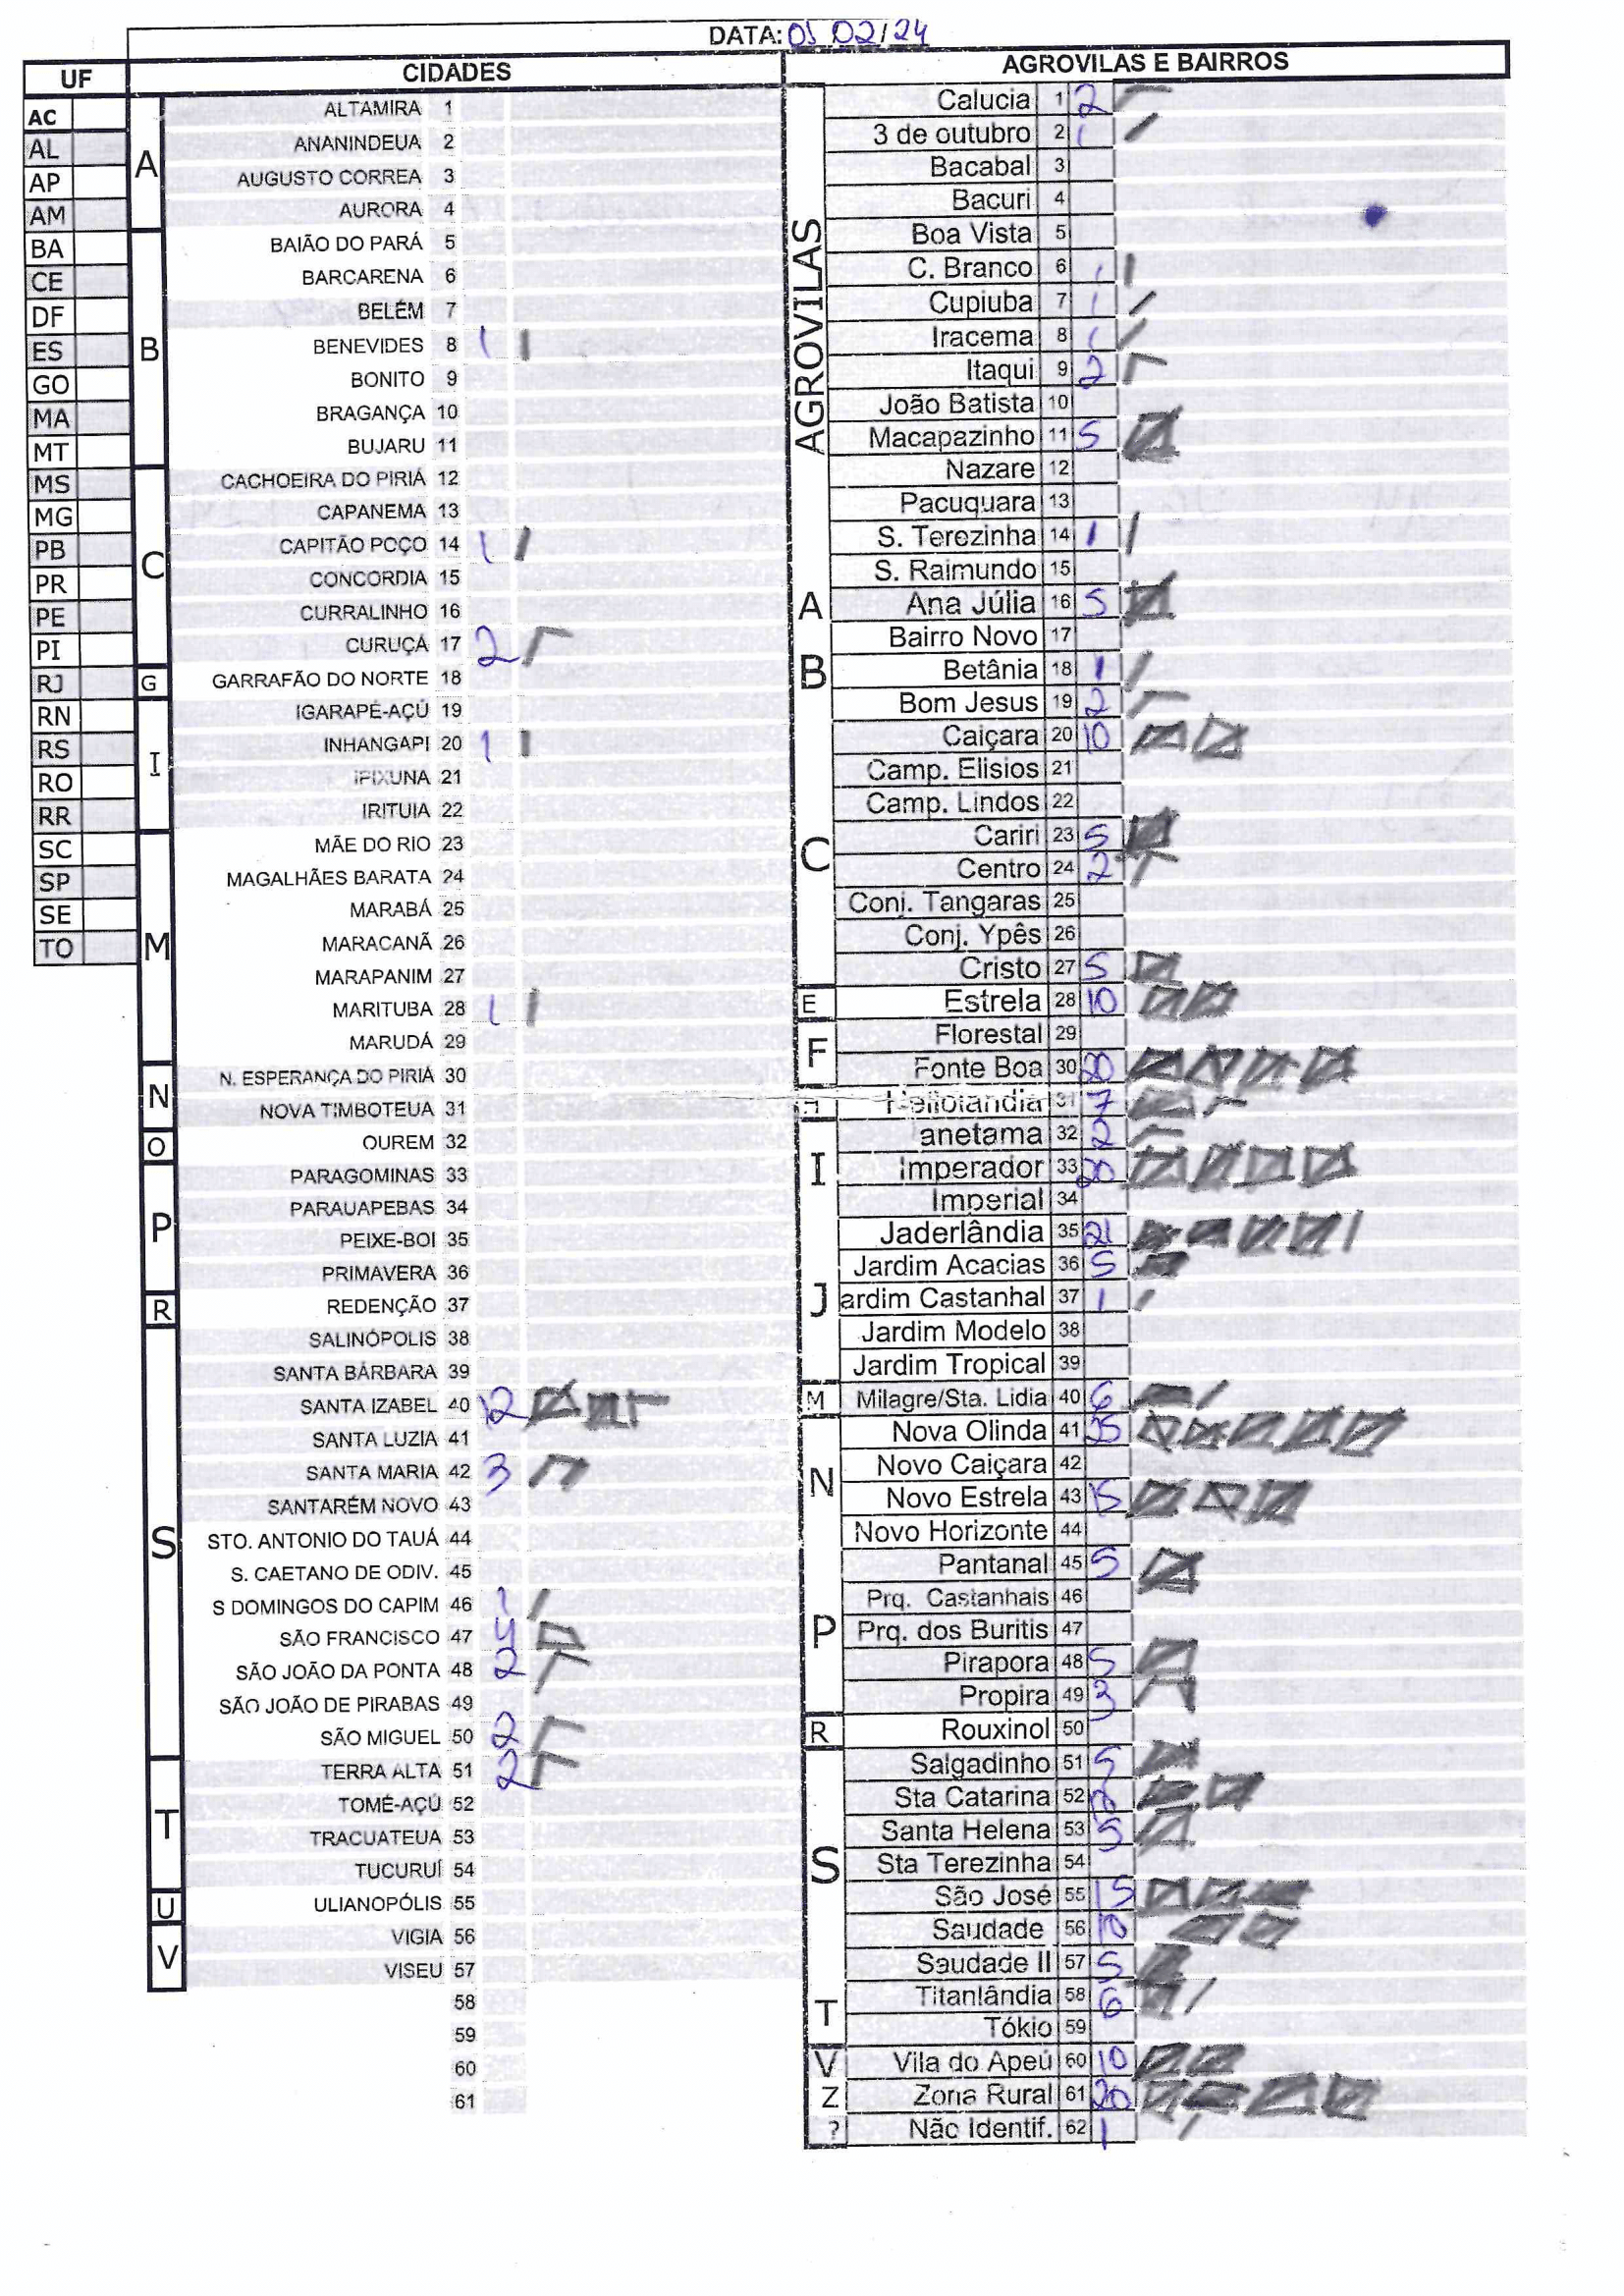 DATA: 05 02/24
UF CIDADES AGROVILAS E BAIRROS
AC
AL
AP
AM
BA
CE
DF
ES
GO
MA
MT
MS
MG
PB
PR
PE
PI
RJ
RN
RS
RO
RR
SC
SP
SE
TO
A
ALTAMIRA 1
ANANINDEUA 2
AUGUSTO CORREA 3
AURORA 4
B
BAIÃO DO PARÁ 5
BARCARENA 6
BELÉM 7
BENEVIDES 8 1
BONITO 9
BRAGANÇA 10
BUJARU 11
C
CACHOEIRA DO PIRIÁ 12
CAPANEMA 13
CAPITÃO POÇO 14 1
CONCORDIA 15
CURRALINHO 16
CURUÇÁ 17 2
G
GARRAFÃO DO NORTE 18
I
IGARAPÉ-AÇÚ 19
INHANGAPI 20 1
IPIXUNA 21
IRITUIA 22
M
MÃE DO RIO 23
MAGALHÃES BARATA 24
MARABÁ 25
MARACANÃ 26
MARAPANIM 27
MARITUBA 28 1
MARUDÁ 29
N
N. ESPERANÇA DO PIRIÁ 30
NOVA TIMBOTEUA 31
O
OUREM 32
P
PARAGOMINAS 33
PARAUAPEBAS 34
PEIXE-BOI 35
PRIMAVERA 36
R
REDENÇÃO 37
S
SALINÓPOLIS 38
SANTA BÁRBARA 39
SANTA IZABEL 40 12
SANTA LUZIA 41
SANTA MARIA 42 3
SANTARÉM NOVO 43
STO. ANTONIO DO TAUÁ 44
S. CAETANO DE ODIV. 45
S DOMINGOS DO CAPIM 46 1
SÃO FRANCISCO 47 4
SÃO JOÃO DA PONTA 48 2
SÃO JOÃO DE PIRABAS 49
SÃO MIGUEL 50 2
T
TERRA ALTA 51 2
TOMÉ-AÇÚ 52
TRACUATEUA 53
TUCURUÍ 54
U
ULIANOPÓLIS 55
V
VIGIA 56
VISEU 57
58
59
60
61
AGROVILAS
Calucia 1 2
3 de outubro 2 1
Bacabal 3
Bacuri 4
Boa Vista 5
C. Branco 6 1
Cupiuba 7 1
Iracema 8 1
Itaqui 9 2
João Batista 10
Macapazinho 11 5
Nazare 12
Pacuquara 13
S. Terezinha 14 1
S. Raimundo 15
A
Ana Júlia 16 5
B
Bairro Novo 17
Betânia 18 1
Bom Jesus 19 2
C
Caiçara 20 10
Camp. Elisios 21
Camp. Lindos 22
Cariri 23 5
Centro 24 2
Conj. Tangaras 25
Conj. Ypês 26
Cristo 27 5
E
Estrela 28 10
F
Florestal 29
Fonte Boa 30 20
H
Heliolandia 31 7
I
anetama 32 2
Imperador 33 20
Imperial 34
J
Jaderlândia 35 21
Jardim Acacias 36 5
ardim Castanhal 37 1
Jardim Modelo 38
Jardim Tropical 39
M
Milagre/Sta. Lidia 40 6
N
Nova Olinda 41 25
Novo Caiçara 42
Novo Estrela 43 15
Novo Horizonte 44
P
Pantanal 45 5
Prq. Castanhais 46
Prq. dos Buritis 47
Pirapora 48 5
Propira 49 3
R
Rouxinol 50
S
Salgadinho 51 5
Sta Catarina 52
Santa Helena 53 5
Sta Terezinha 54
São José 55 15
Saudade 56 10
Saudade II 57 5
T
Titanlândia 58 6
Tókio 59
V
Vila do Apeú 60 10
Z
Zona Rural 61 20
?
Não Identif. 62 1